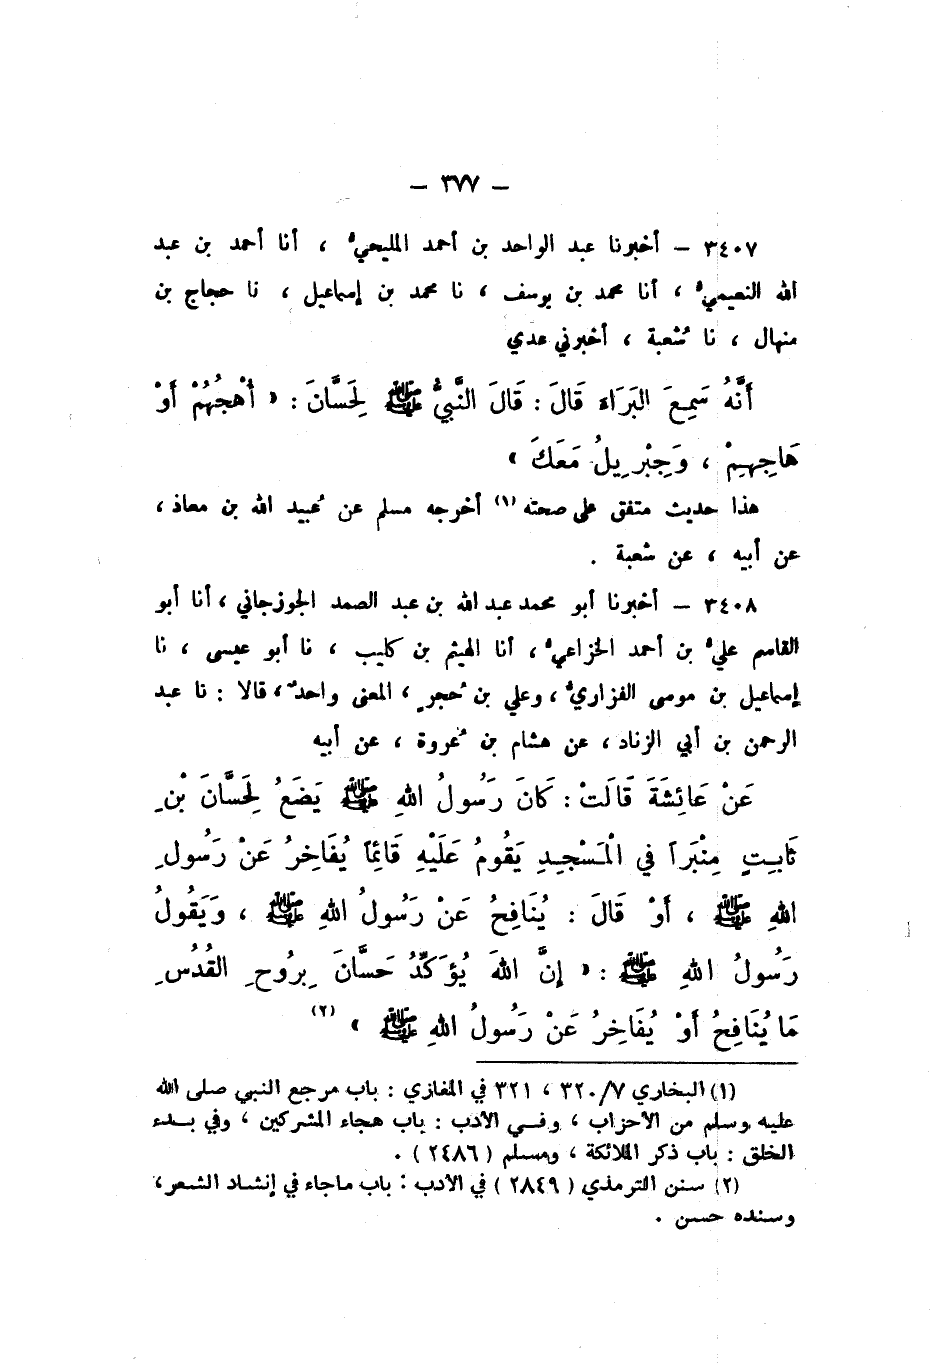 – ٣٧٧ –
٣٤٠٧ – أخبرنا عبد الواحد بن أحمد المليحيُّ ، أنا أحمد بن عبد
الله النعيميُّ ، أنا محمد بن يوسف ، نا محمد بن إسماعيل ، نا حجاج بن
منهال ، نا شُعبة ، أخبرني عدي
أَنَّهُ سَمِعَ البَرَاءَ قَالَ : قَالَ النَّبِيُّ ﷺ لِحَسَّانَ : « أُهْجُهُمْ أَوْ
هَاجِهِمْ ، وَجِبْرِيلُ مَعَكَ »
هذا حديث متفق على صحته (١) أخرجه مسلم عن عُبيد الله بن معاذ ،
عن أبيه ، عن شعبة .
٣٤٠٨ – أخبرنا أبو محمد عبد الله بن عبد الصمد الجوزجاني ، أنا أبو
القاسم عليُّ بن أحمد الخزاعيُّ ، أنا الهيثم بن كليب ، نا أبو عيسى ، نا
إسماعيل بن موسى الفزاريُّ ، وعلي بن حُجرٍ ، المعنى واحدٌ ، قالا : نا عبد
الرحمن بن أبي الزناد ، عن هشام بن عُروة ، عن أبيه
عَنْ عَائِشَةَ قَالَتْ : كَانَ رَسُولُ اللهِ ﷺ يَضَعُ لِحَسَّانَ بْنِ
ثَابِتٍ مِنْبَراً فِي الْمَسْجِدِ يَقُومُ عَلَيْهِ قَائِمًا يُفَاخِرُ عَنْ رَسُولِ
اللهِ ﷺ ، أَوْ قَالَ : يُنَافِحُ عَنْ رَسُولِ اللهِ ﷺ ، وَيَقُولُ
رَسُولُ اللهِ ﷺ : « إِنَّ اللهَ يُؤَكِّدُ حَسَّانَ بِرُوحِ القُدُسِ
مَا يُنَافِحُ أَوْ يُفَاخِرُ عَنْ رَسُولِ اللهِ ﷺ » (٢)
(١) البخاري ٣٢٠/٧ ، ٣٢١ في المغازي : باب مرجع النبي صلى الله
عليه وسلم من الأحزاب ، وفي الأدب : باب هجاء المشركين ، وفي بدء
الخلق : باب ذكر الملائكة ، ومسلم ( ٢٤٨٦ ) .
(٢) سنن الترمذي ( ٢٨٤٩ ) في الأدب : باب ماجاء في إنشاد الشعر ،
وسنده حسن .